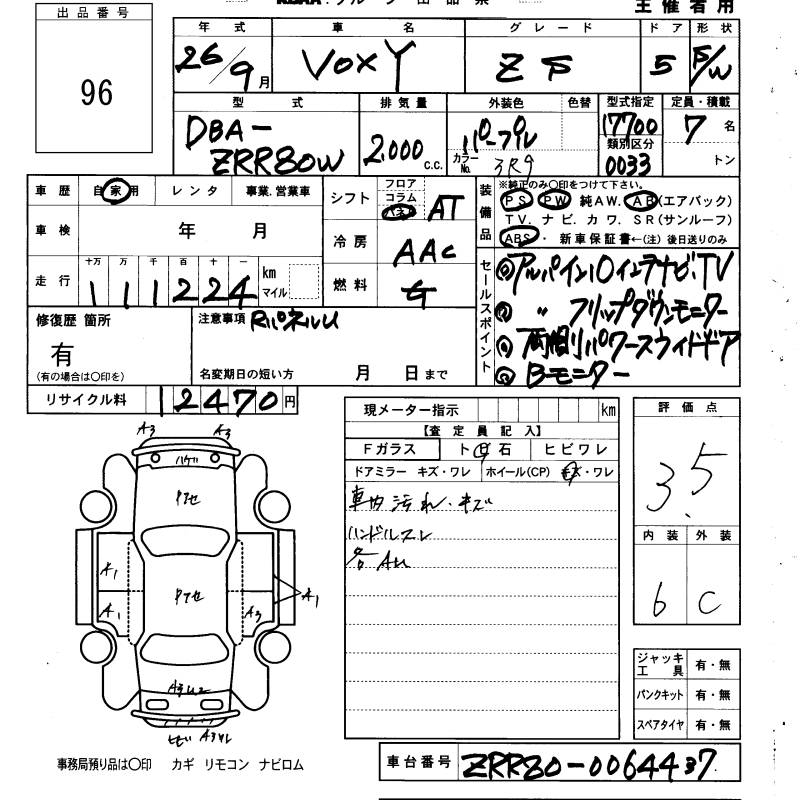 主催者用
出品番号
96
年式 車名 グレード ドア 形状
26/9月 VOXY ZF 5 F/W
型式 排気量 外装色 色替 型式指定 定員・積載
DBA-ZRR80W 2,000c.c. パープル 17700 7名
カラーNo. 3R9 類別区分 0033 トン
車歴 自家用 レンタ 事業.営業車
シフト フロア コラム パネル AT
車検 年 月
冷房 AAC
走行 十万 万 千 百 十 一
111224 km マイル
燃料
装備品 ※純正のみ〇印をつけて下さい。
PS PW 純AW. AB(エアバック)
TV. ナビ. カワ. SR(サンルーフ)
ABS・ 新車保証書←(注) 後日送りのみ
セールスポイント
◎アルパイン10インチナビ.TV
◎ 〃 フリップダウンモニター
◎両側パワースライドドア
◎Bモニター
修復歴 箇所
有
(有の場合は〇印を)
注意事項 RパネルU
名変期日の短い方 月 日まで
リサイクル料 12470円
現メーター指示 km
【査定員記入】
Fガラス ト日石 ヒビワレ
ドアミラー キズ・ワレ ホイール(CP) キズ・ワレ
車内汚れ・キズ
ハンドルスレ
各AU
評価点
3.5
内装 外装
6 C
A3 A3
ハゲ
クスセ
A1
クスセ
A1 A3 A1
ジャッキ工具 有・無
パンクキット 有・無
スペアタイヤ 有・無
事務局預り品は〇印 カギ リモコン ナビロム
車台番号 ZRR80-0064437